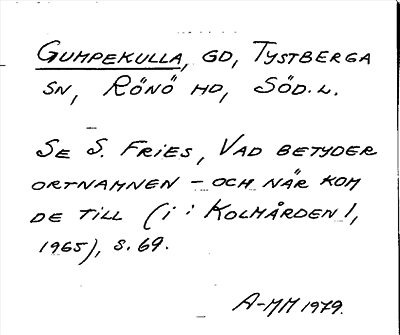 GUMPEKULLA, GD, TYSTBERGA
SN, RÖNÖ HD, SÖD.L.
SE S. FRIES, VAD BETYDER
ORTNAMNEN – OCH NÄR KOM
DE TILL (I: KOLMÅRDEN 1,
1965), S. 69.
A-MM 1979.